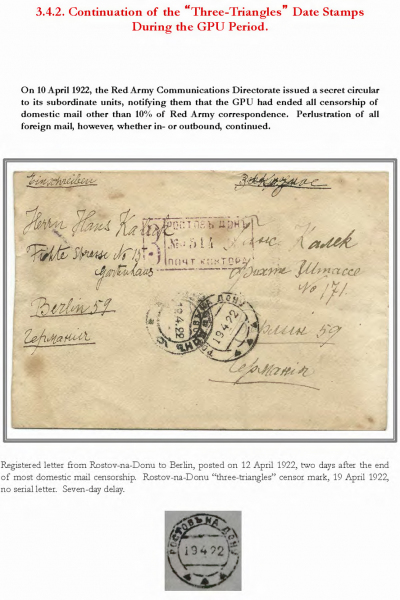 3.4.2. Continuation of the “Three-Triangles” Date Stamps
During the GPU Period.
On 10 April 1922, the Red Army Communications Directorate issued a secret circular
to its subordinate units, notifying them that the GPU had ended all censorship of
domestic mail other than 10% of Red Army correspondence. Perlustration of all
foreign mail, however, whether in- or outbound, continued.
Einschreiben
Заказное
Herrn Hans
РОСТОВЪ ДОНЪ
№ 514
ПОЧТ КОНТОРА
Ганс Калек
Фихте Штрассе
No 171
Berlin 59
Германия
19.4.22
РОСТОВЪ НА ДОНУ
19 4 22
59
Германія
Registered letter from Rostov-na-Donu to Berlin, posted on 12 April 1922, two days after the end
of most domestic mail censorship. Rostov-na-Donu “three-triangles” censor mark, 19 April 1922,
no serial letter. Seven-day delay.
РОСТОВЪ НА ДОНУ
19 4 22